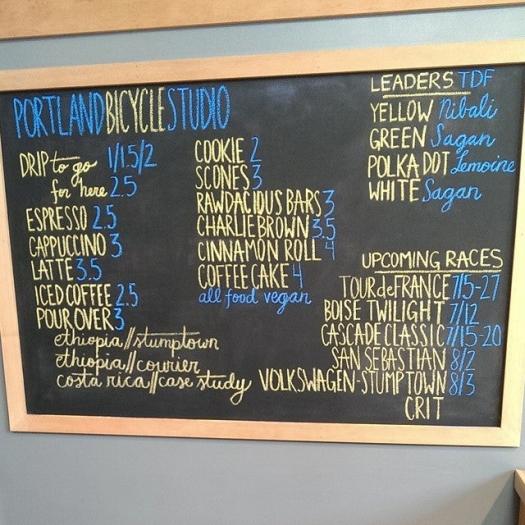 PORTLAND BICYCLE STUDIO
DRIP to go 1/1.5/2
for here 2.5
ESPRESSO 2.5
CAPPUCCINO 3
LATTE 3.5
ICED COFFEE 2.5
POUR OVER 3
ethiopia//stumptown
ethiopia//courier
costa rica//case study
COOKIE 2
SCONES 3
RAWDACIOUS BARS 3
CHARLIE BROWN 3.5
CINNAMON ROLL 4
COFFEE CAKE 4
all food vegan
LEADERS TDF
YELLOW Nibali
GREEN Sagan
POLKA DOT Lemoine
WHITE Sagan
UPCOMING RACES
TOUR de FRANCE 7/5-27
BOISE TWILIGHT 7/12
CASCADE CLASSIC 7/15-20
SAN SEBASTIAN 8/2
VOLKSWAGEN-STUMPTOWN 8/3
CRIT